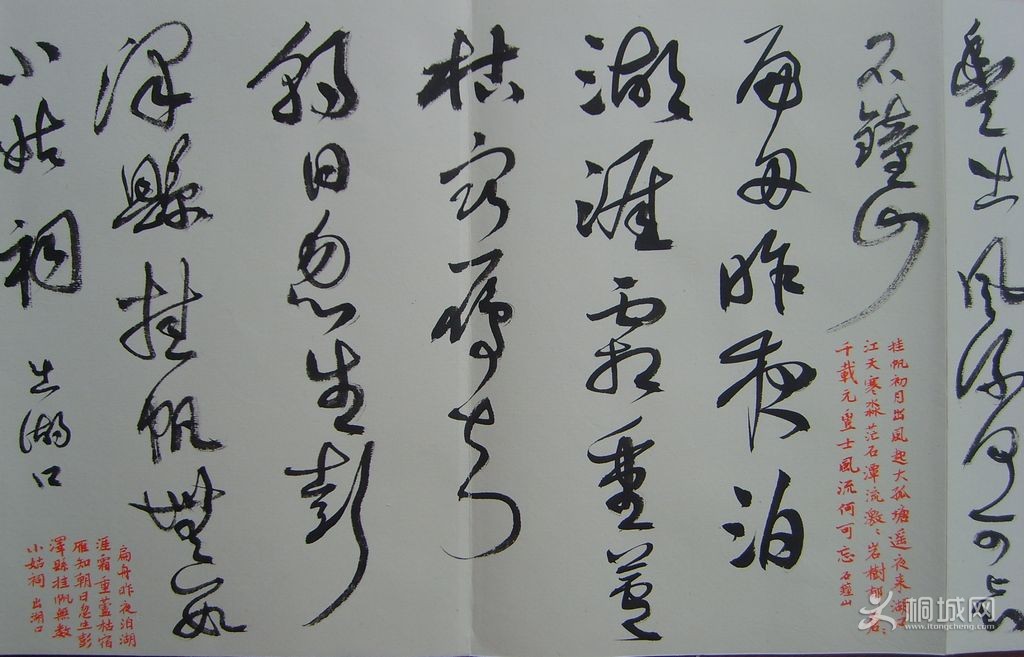 豐士風流何可忘
石鐘山
挂帆初月出風起大孤塘遥夜来湖
江天寒淼茫石潭流激、岩樹郁、
千載元豐士風流何可忘 石鐘山
扁舟昨夜泊
湖涯霜重蘆
枯宿雁知
朝日忽生彭
澤縣挂帆無数
小姑祠 出湖口
扁舟昨夜泊湖
涯霜重蘆枯宿
雁知朝日忽生彭
澤縣挂帆無数
小姑祠 出湖口
桐城网
www.itongcheng.com